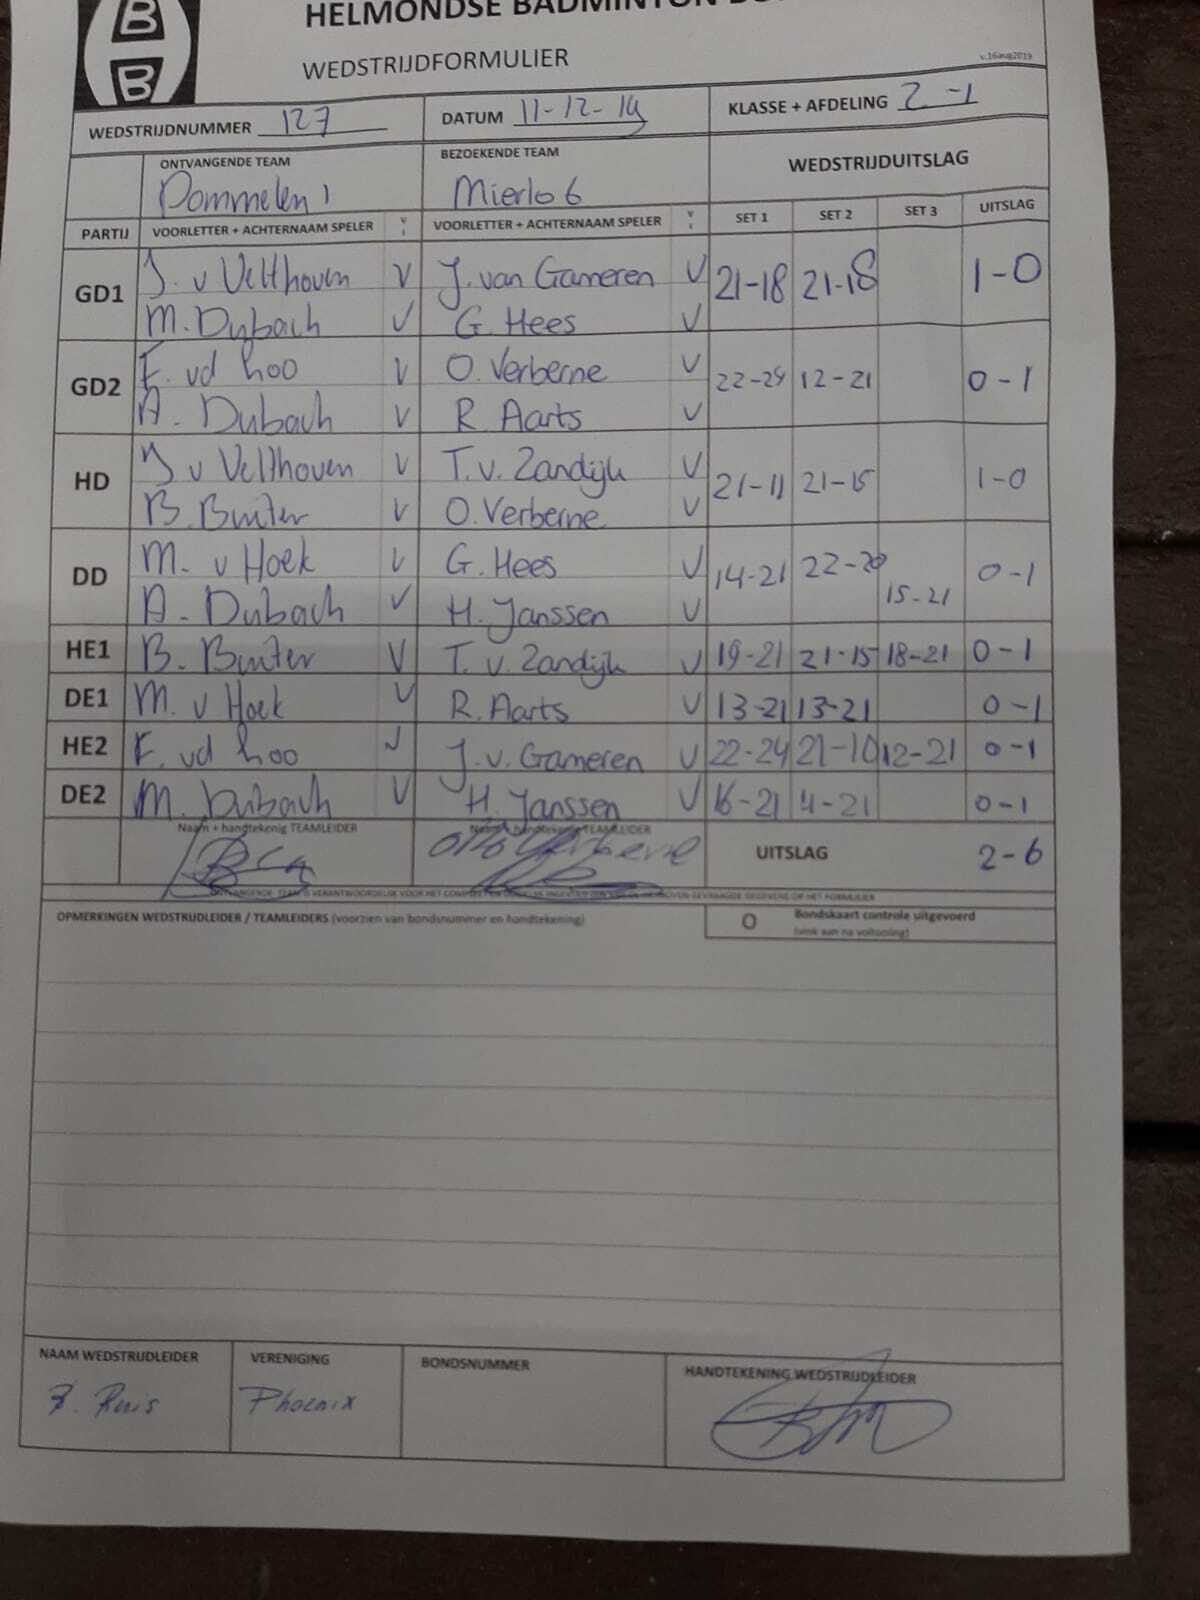 B
B
HELMONDSE BADMINTON
WEDSTRIJDFORMULIER
v.16aug2019
WEDSTRIJDNUMMER 127 DATUM 11-12-19 KLASSE + AFDELING 2-1
ONTVANGENDE TEAM BEZOEKENDE TEAM WEDSTRIJDUITSLAG
Dommelen 1 Mierlo 6
PARTIJ VOORLETTER + ACHTERNAAM SPELER V VOORLETTER + ACHTERNAAM SPELER V SET 1 SET 2 SET 3 UITSLAG
GD1 J. v Velthoven V J. van Gameren V 21-18 21-18 1-0
M. Dubach V G. Hees V
GD2 F. vd hoo V O. Verberne V 22-24 12-21 0-1
A. Dubach V R Aarts V
HD J v Velthoven V T. v. Zandijk V 21-11 21-15 1-0
B. Buiter V O. Verberne V
DD M. v Hoek V G. Hees V 14-21 22-20 15-21 0-1
A. Dubach V H. Janssen V
HE1 B. Buiter V T. v. Zandijk V 19-21 21-15 18-21 0-1
DE1 M. v Hoek V R. Aarts V 13-21 13-21 0-1
HE2 F. vd hoo V J. v. Gameren V 22-24 21-10 12-21 0-1
DE2 M. Dubach V H. Janssen V 16-21 4-21 0-1
Naam + handtekenig TEAMLEIDER Naam + handtekenig TEAMLEIDER UITSLAG 2-6
Otto Verberne
OPMERKINGEN WEDSTRIJDLEIDER / TEAMLEIDERS (voorzien van bondsnummer en handtekening) O Bondskaart controle uitgevoerd
(vink aan na voltooiing)
NAAM WEDSTRIJDLEIDER VERENIGING BONDSNUMMER HANDTEKENING WEDSTRIJDLEIDER
Ruis Phoenix